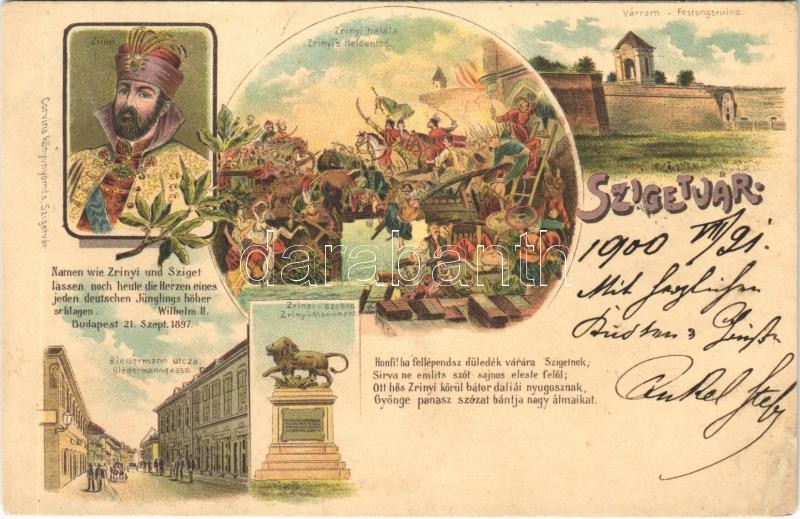 Zrinyi
Zrinyi halála
Zrinyi's Heldentod.
Várrom - Festungsruine.
Corvina könyvnyomda, Szigetvár.
SZIGETVÁR.
1900 VII/21.
Mit herzlichen
Onkel
darabanth
Namen wie Zrinyi und Sziget
lassen noch heute die Herzen eines
jeden deutschen Jünglings höher
schlagen. Wilhelm II.
Budapest 21. Szept. 1897.
Zrinyi-szobor
Zrinyi-Monument.
Biedermann utcza.
Biedermanngasse.
Honfi! ha fellépendsz düledék várára Szigetnek;
Sirva ne emlits szót sajnos eleste felöl;
Ott hös Zrinyi körül bátor daliái nyugosznak,
Gyönge panasz szózat bántja nagy álmaikat.